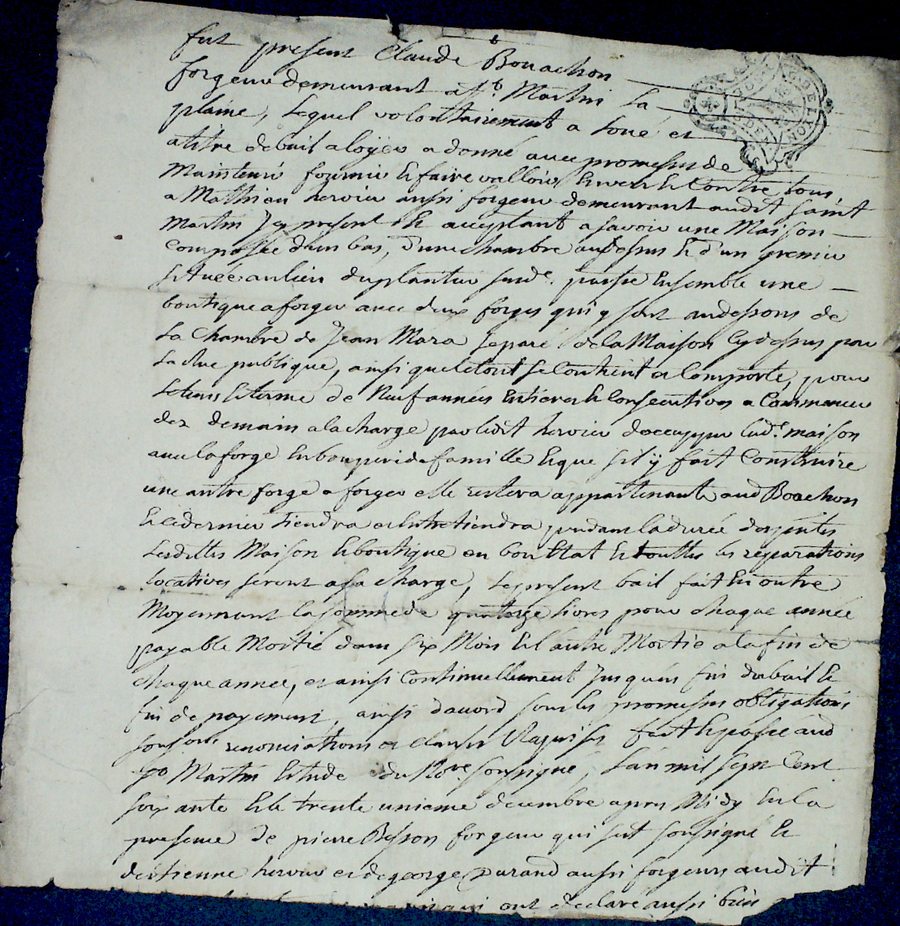 fut present Claude Bouachon
forgeur demeurant a St. Martin la
plaine, lequel volontairement a loué et
a titre de bail a loyer a donné avec promesses de
Maintenir fournir & faire valloir Envers & Contre tous
a Mathieu hervier aussi forgeur demeurant audit saint
Martin Icy present & acceptant a savoir une Maison
Composée d'un bas, d'une chambre au dessus & d'un grenier
scituée au lieu du plantier surd. parse Ensemble une
boutique a forger avec deux forges qui y sont au dessous de
la Chambre de Jean Mara separé de la Maison Cy dessus par
la Rue publique, ainsi que le tout se Contient et Comporte, pour
le tems & terme de Neuf années Entieres & Consecutives a Commencer
dez demain a la charge par ledit hervier d'occuper lad. maison
avec la forge En bon peri de famille & que s'il y fait Construire
une autre forge a forger elle restera appartenante aud Bouachon
& ce dernier tiendra et Entretiendra pendant la durée des pntes
lesdittes Maison & boutique en bon Etat & touttes les reparations
locatives seront a sa charge, le present bail fait En outre
Moyennant la somme de quatorze livres pour chaque année
payable Moitié dans six Mois & l'autre Moitié a la fin de
chaque année, et ainsi Continuellement Jusques fin du bail &
fin de payement, ainsi d'accord sous les promesses obligations
soums. renonciations et clauses Requises fait & passé aud
St Martin Etude du Nore. soussigné, l'an mil sept Cent
soixante & le trente unieme decembre apres Midy En la
presence de pierre Besson forgeur qui s'est soussigné &
d'estienne hervier et de george Durand aussi forgeurs audit
qui ont declaré aussi bien